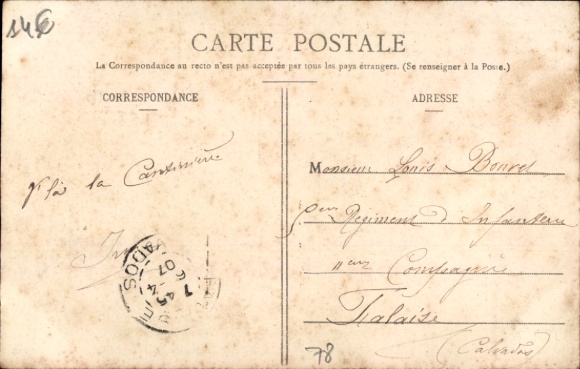 14€
CARTE POSTALE
La Correspondance au recto n'est pas acceptée par tous les pays étrangers. (Se renseigner à la Poste.)
CORRESPONDANCE
ADRESSE
V'là la Cantinière
Monsieur Louis
5eme Régiment d'Infanterie
11eme Compagnie
Falaise
(Calvados)
VADOS
7 45
-4
6
07
78